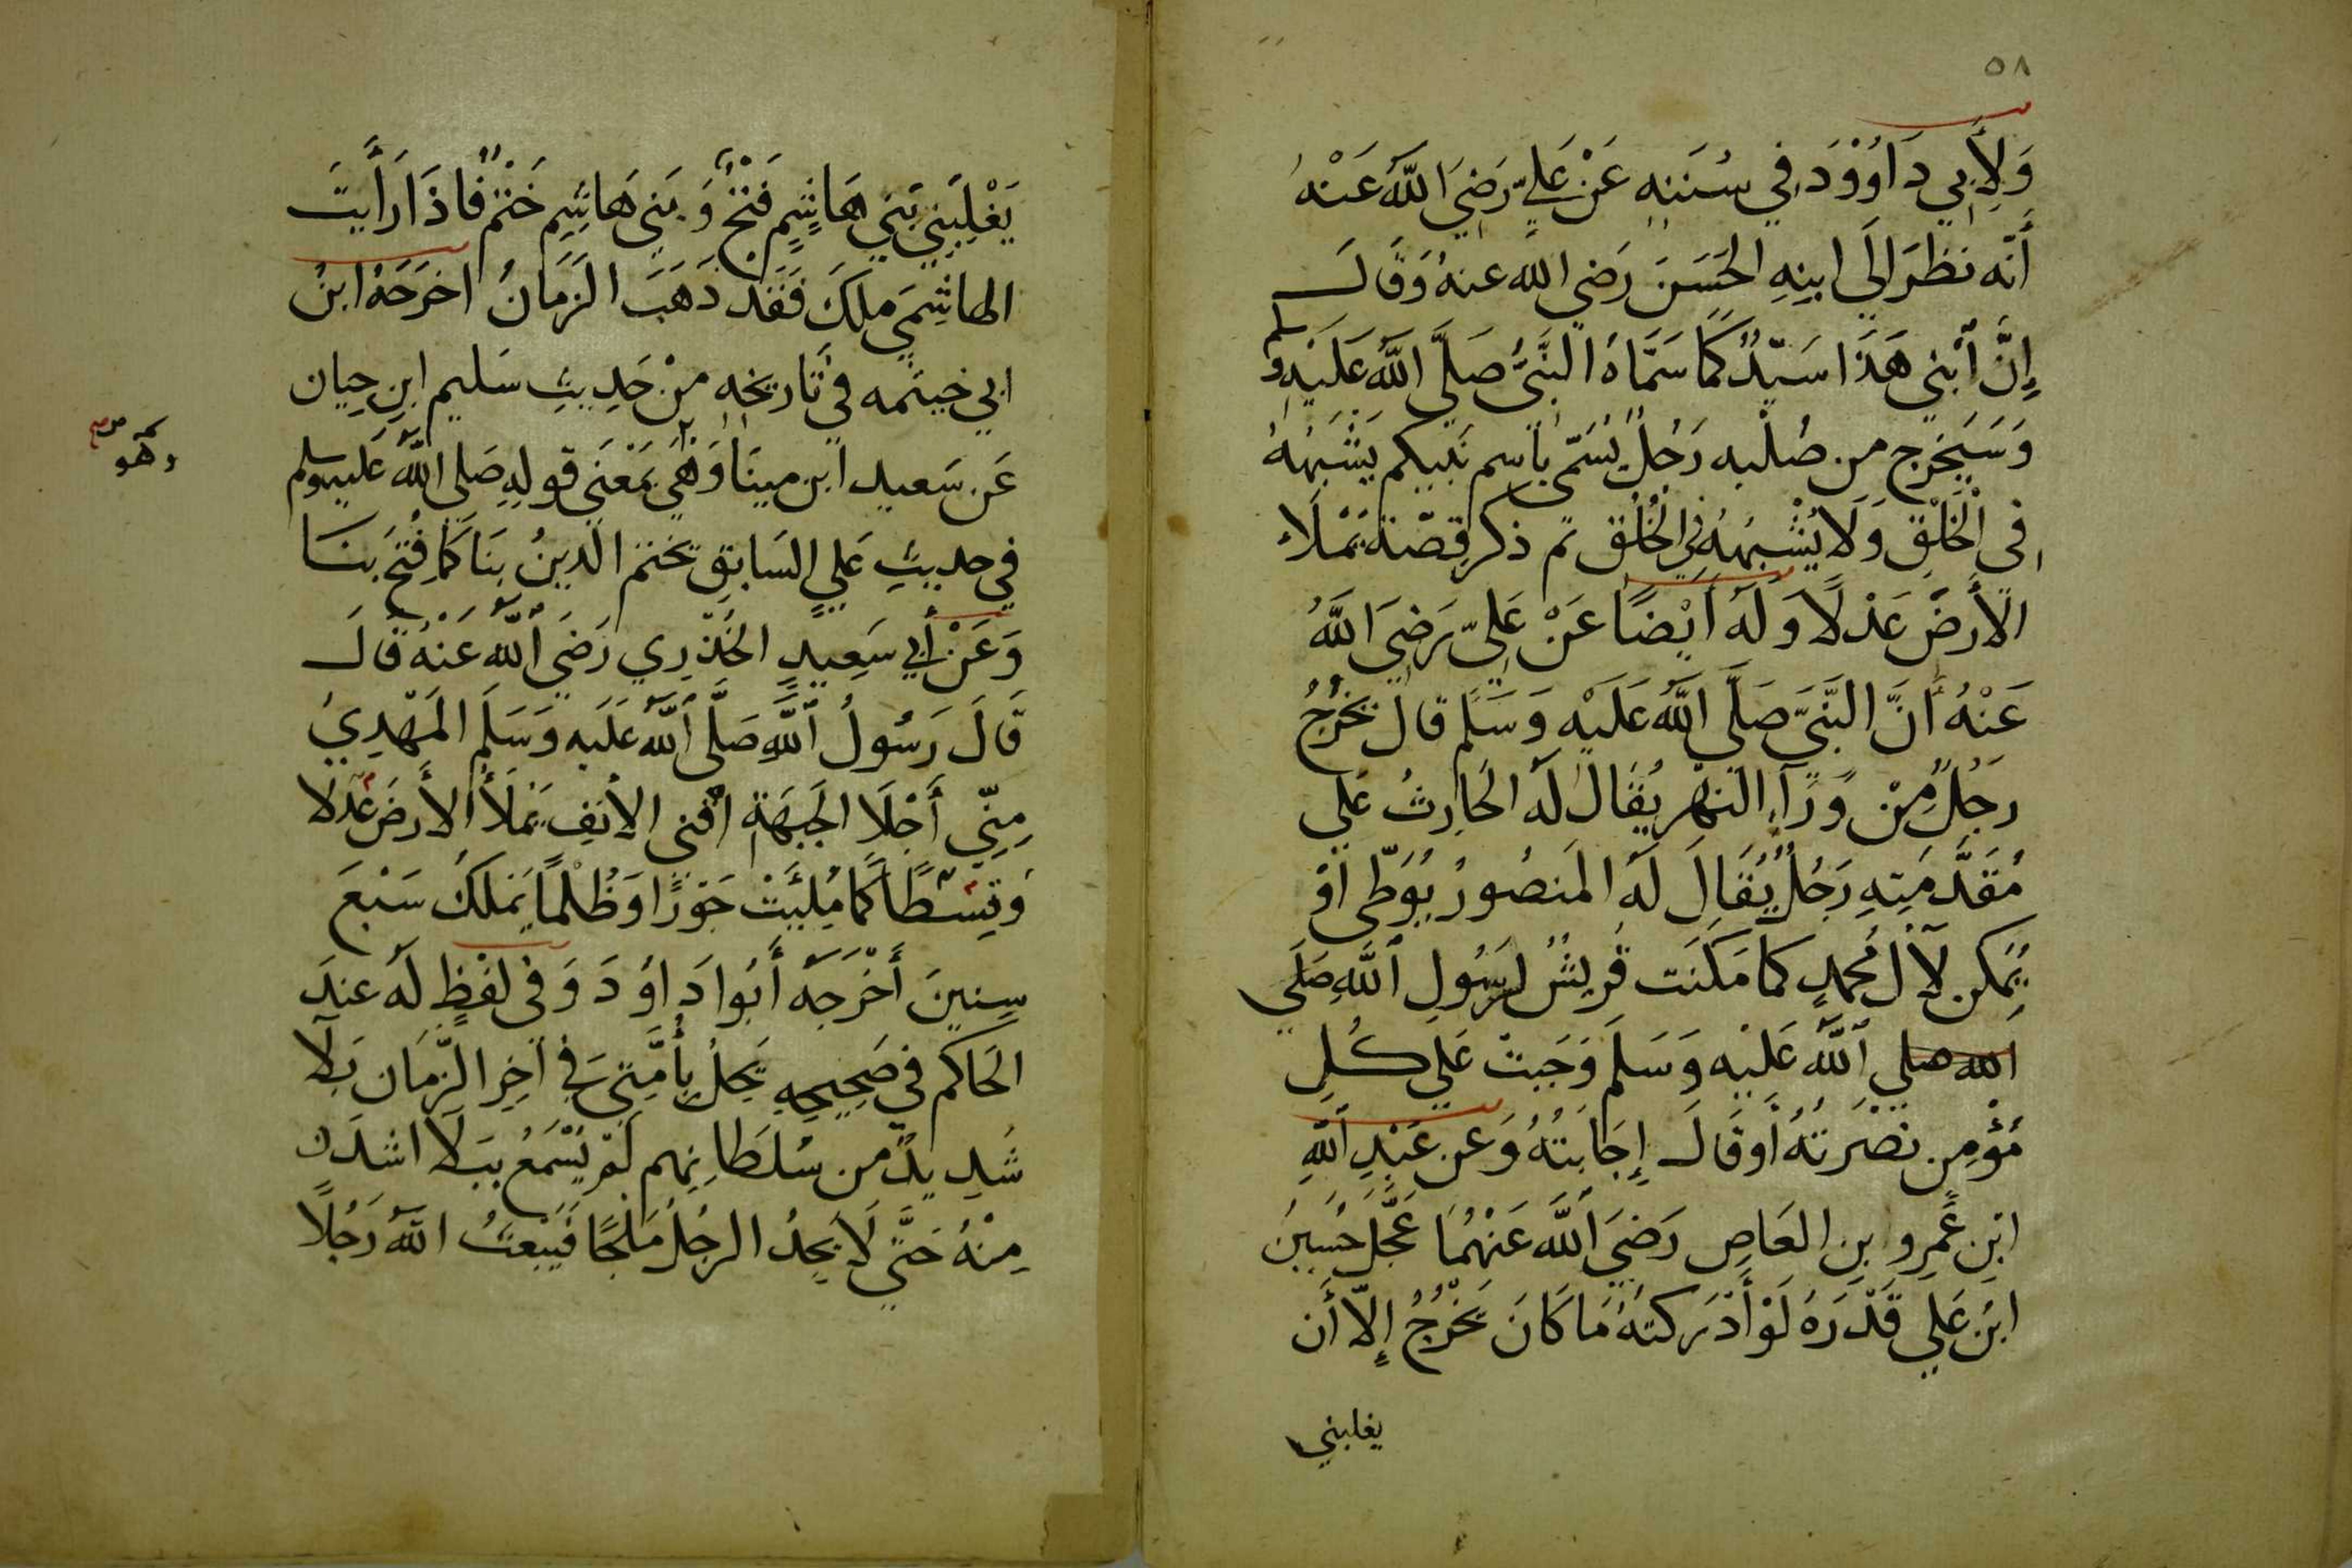 ٥٨
وَلِأَبِي دَاوُوْدَ فِي سُنَنِهِ عَنْ عَلِيٍّ رَضِيَ اللَّهُ عَنْهُ
أَنَّهُ نظَرَ الَي ابنِهِ الحَسَنَ رَضي الله عنهُ وَقَالَ
إِنَّ ٱبْنِي هَذَا سَيّدٌ كَمَا سَمَّاهُ النَّبيُّ صَلَّى اللَّهُ عَلَيْهِ وسلم
وَسَيَخرج من صُلْبِه رَجُلٌ يُسَمّى بِاسم نَبيكم يَشْبَهُهُ
فِي الْخَلْقِ وَلَا يُشْبِهُهُ فِي الْخُلُقِ ثم ذكر قِصّة يَمْلَاء
الأَرضَ عَدْلًا وَلَهُ اَيْضًا عَنْ عَلِيّ رَضِيَ اللَّهُ
عَنْهُ أَنَّ النَّبيَّ صَلَّي اللَّهُ عَلَيْهِ وَسَلم قال يَخْرُجُ
رَجُلٌ مِنْ وَرَآءِ النهْر يُقَال لَه الحَارِثُ عَلي
مُقَدَّمَتِهِ رَجُلٌ يُقَالَ لَهُ المَنصُورُ يُوَطِّي اَوْ
يُمَكن لآل مُحمدٍ كما مَكَنَت قُريشٌ لرَسُولِ ٱللَّهِ صَلَي
الله صلي ٱللَّهُ عَلَيْهِ وَسَلم وَجَبت عَلي كُلِ
مُؤْمِن نصْرَتهُ أَو قَالَ إِجَابتهُ وَعن عَبْدِ ٱللهِ
ابْنِ عَمرو بنِ العَاصِ رَضيَ ٱللَّهُ عَنْهُمَا عَجَّلَ حُسَينُ
ابنُ عَلي قَدَرَهُ لَوْ أَدْرَكتهُ مَا كَانَ يَخْرُجُ إِلَّا أَن
يغلبني
يَغْلِبَنِي بَنِي هَاشِمٍ فَتْحٌ وَبَنِي هَاشِمِ خَتْمٌ فَاذَا رَأَيتَ
الهاشِمَي ملكَ فَقَدْ ذَهَبَ الزَمَانُ اخرَجَهُ ابنُ
ابي خيثمه في تَاريخِه منْ حَدِيثِ سَليم ابنِ حِيان
عَن سَعيد ابن مينَا وَهي بمَعْنَى قولِهِ صَلى اللَّهُ عَليه وسلم
وهو
في حديثِ عَلي السَابقِ تختم الدينُ بنَا كَمَا فُتحَ بنَا
وَعَنْ أَبي سَعِيدٍ الخُدْرِي رَضيَ ٱللَّهُ عَنْهُ قَالَ
قَالَ رَسُولُ ٱللَّهِ صَلَّى ٱللَّهُ عَلَيه وَسَلَم المَهْدِيُ
مِنِّي أَجْلَا الجَبهَة اقْنَي الانفِ يَمْلَأُ الأَرضَ عَدلا
وَقِسْطًا كَمَا مُلِئَتْ جَوْرًا وَظُلْمًا يَمَلكُ سَبْعَ
سِنِينَ أَخْرَجَهُ أَبُوا دَاوُدَ وَفي لَفظٍ لَه عندَ
الحَاكم في صَحِيحِهِ يَحِلُ بِأُمَّتِي في آخِرِ الزّمَان بَلآ
شَدِيدٌ من سُلطَانِهم لَمْ يُسْمَعُ ببَلَا اشدَ
مِنْهُ حَتَّي لَا يجِدُ الرجُلُ مَلْجًا فَيَبْعَثُ اللَّهُ رَجُلًا